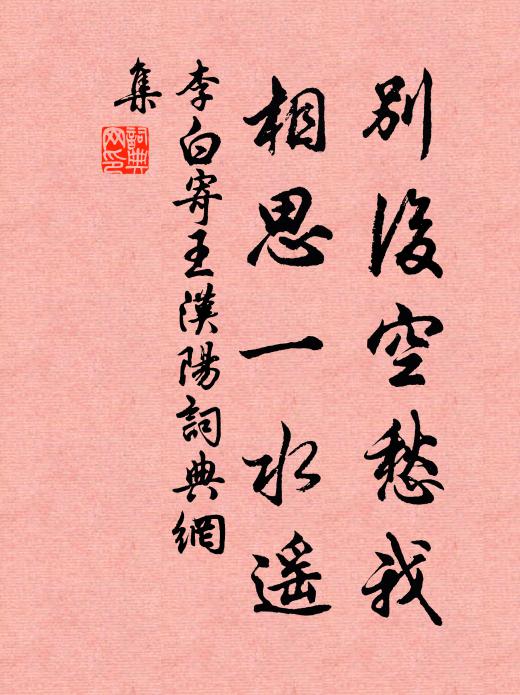 別後空愁我
相思一水遥
李白寄王漢陽詞典網
集
詞典
网印